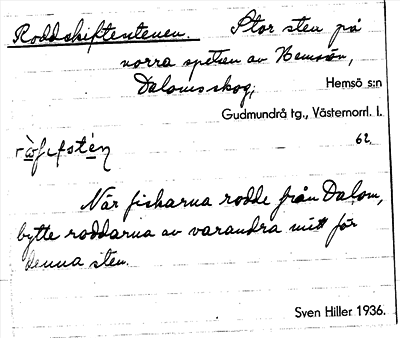 Roddskiftestenen. Stor sten på
norra spetsen av Hemsön,
Daloms skog; Hemsö s:n
Gudmundrå tg., Västernorrl. l.
62.
När fiskarna rodde från Dalom,
bytte roddarna av varandra mitt för
denna sten.
Sven Hiller 1936.